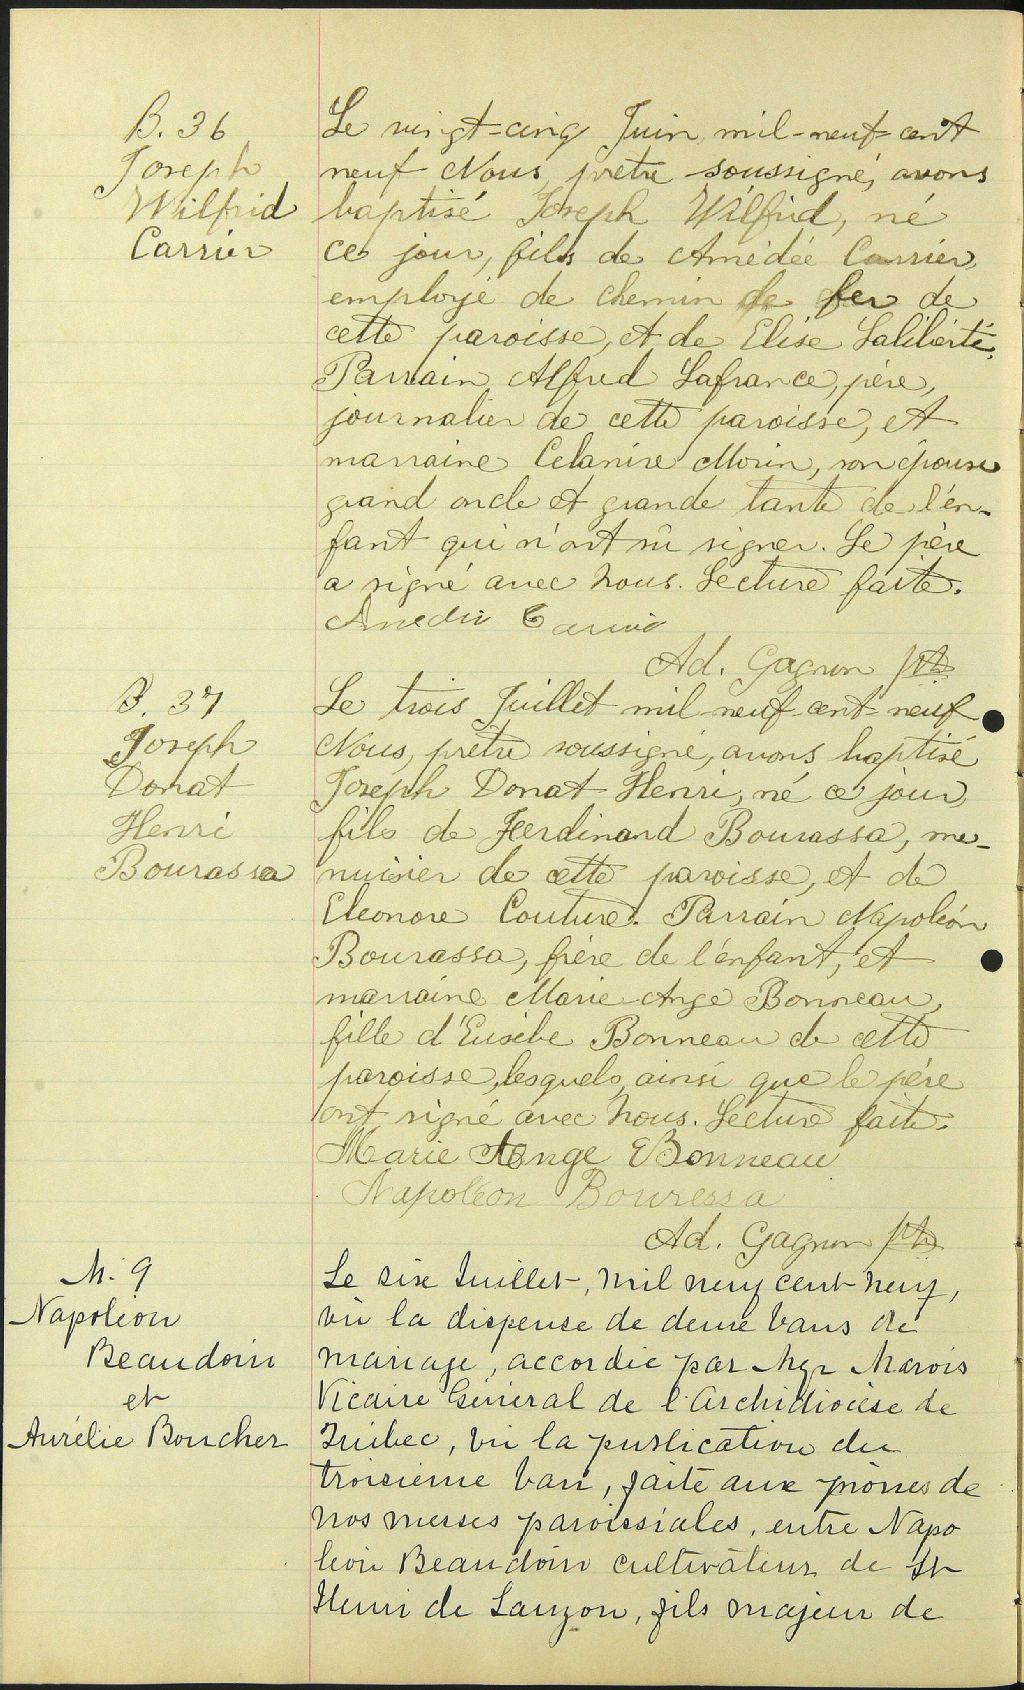 B. 36
Joseph
Wilfrid
Carrier
Le vingt-cinq Juin, mil-neuf-cent
neuf Nous, prêtre soussigné, avons
baptisé Joseph Wilfrid, né
ce jour, fils de Amédée Carrier,
employé de chemin de fer de
cette paroisse, et de Elise Laliberté.
Parrain Alfred Lafrance, père,
journalier de cette paroisse, et
marraine Celanire Morin, son épouse
grand oncle et grande tante de l'en-
fant qui n'ont su signer. Le père
a signé avec nous. Lecture faite.
Amedie Carrier
Ad. Gagnon ptre
B. 37
Joseph
Donat
Henri
Bourassa
Le trois Juillet mil neuf cent neuf
Nous, prêtre soussigné, avons baptisé
Joseph Donat Henri, né ce jour,
fils de Ferdinand Bourassa, me-
nuisier de cette paroisse, et de
Eleonore Couture. Parrain Napoléon
Bourassa, frère de l'enfant, et
marraine Marie-Ange Bonneau,
fille d'Eusèbe Bonneau de cette
paroisse, lesquels, ainsi que le père
ont signé avec nous. Lecture faite.
Marie Ange Bonneau
Napoléon Bouressa
Ad. Gagnon ptre
M. 9
Napoléon
Beaudoin
et
Aurélie Boucher
Le six Juillet, mil neuf cent neuf,
vu la dispense de deux bans de
mariage, accordée par Mgr Marois
Vicaire Général de l'Archidiocèse de
Québec, vu la publication du
troisième ban, faite aux prônes de
nos messes paroissiales, entre Napo
léon Beaudoin cultivateur de St
Henri de Lauzon, fils majeur de